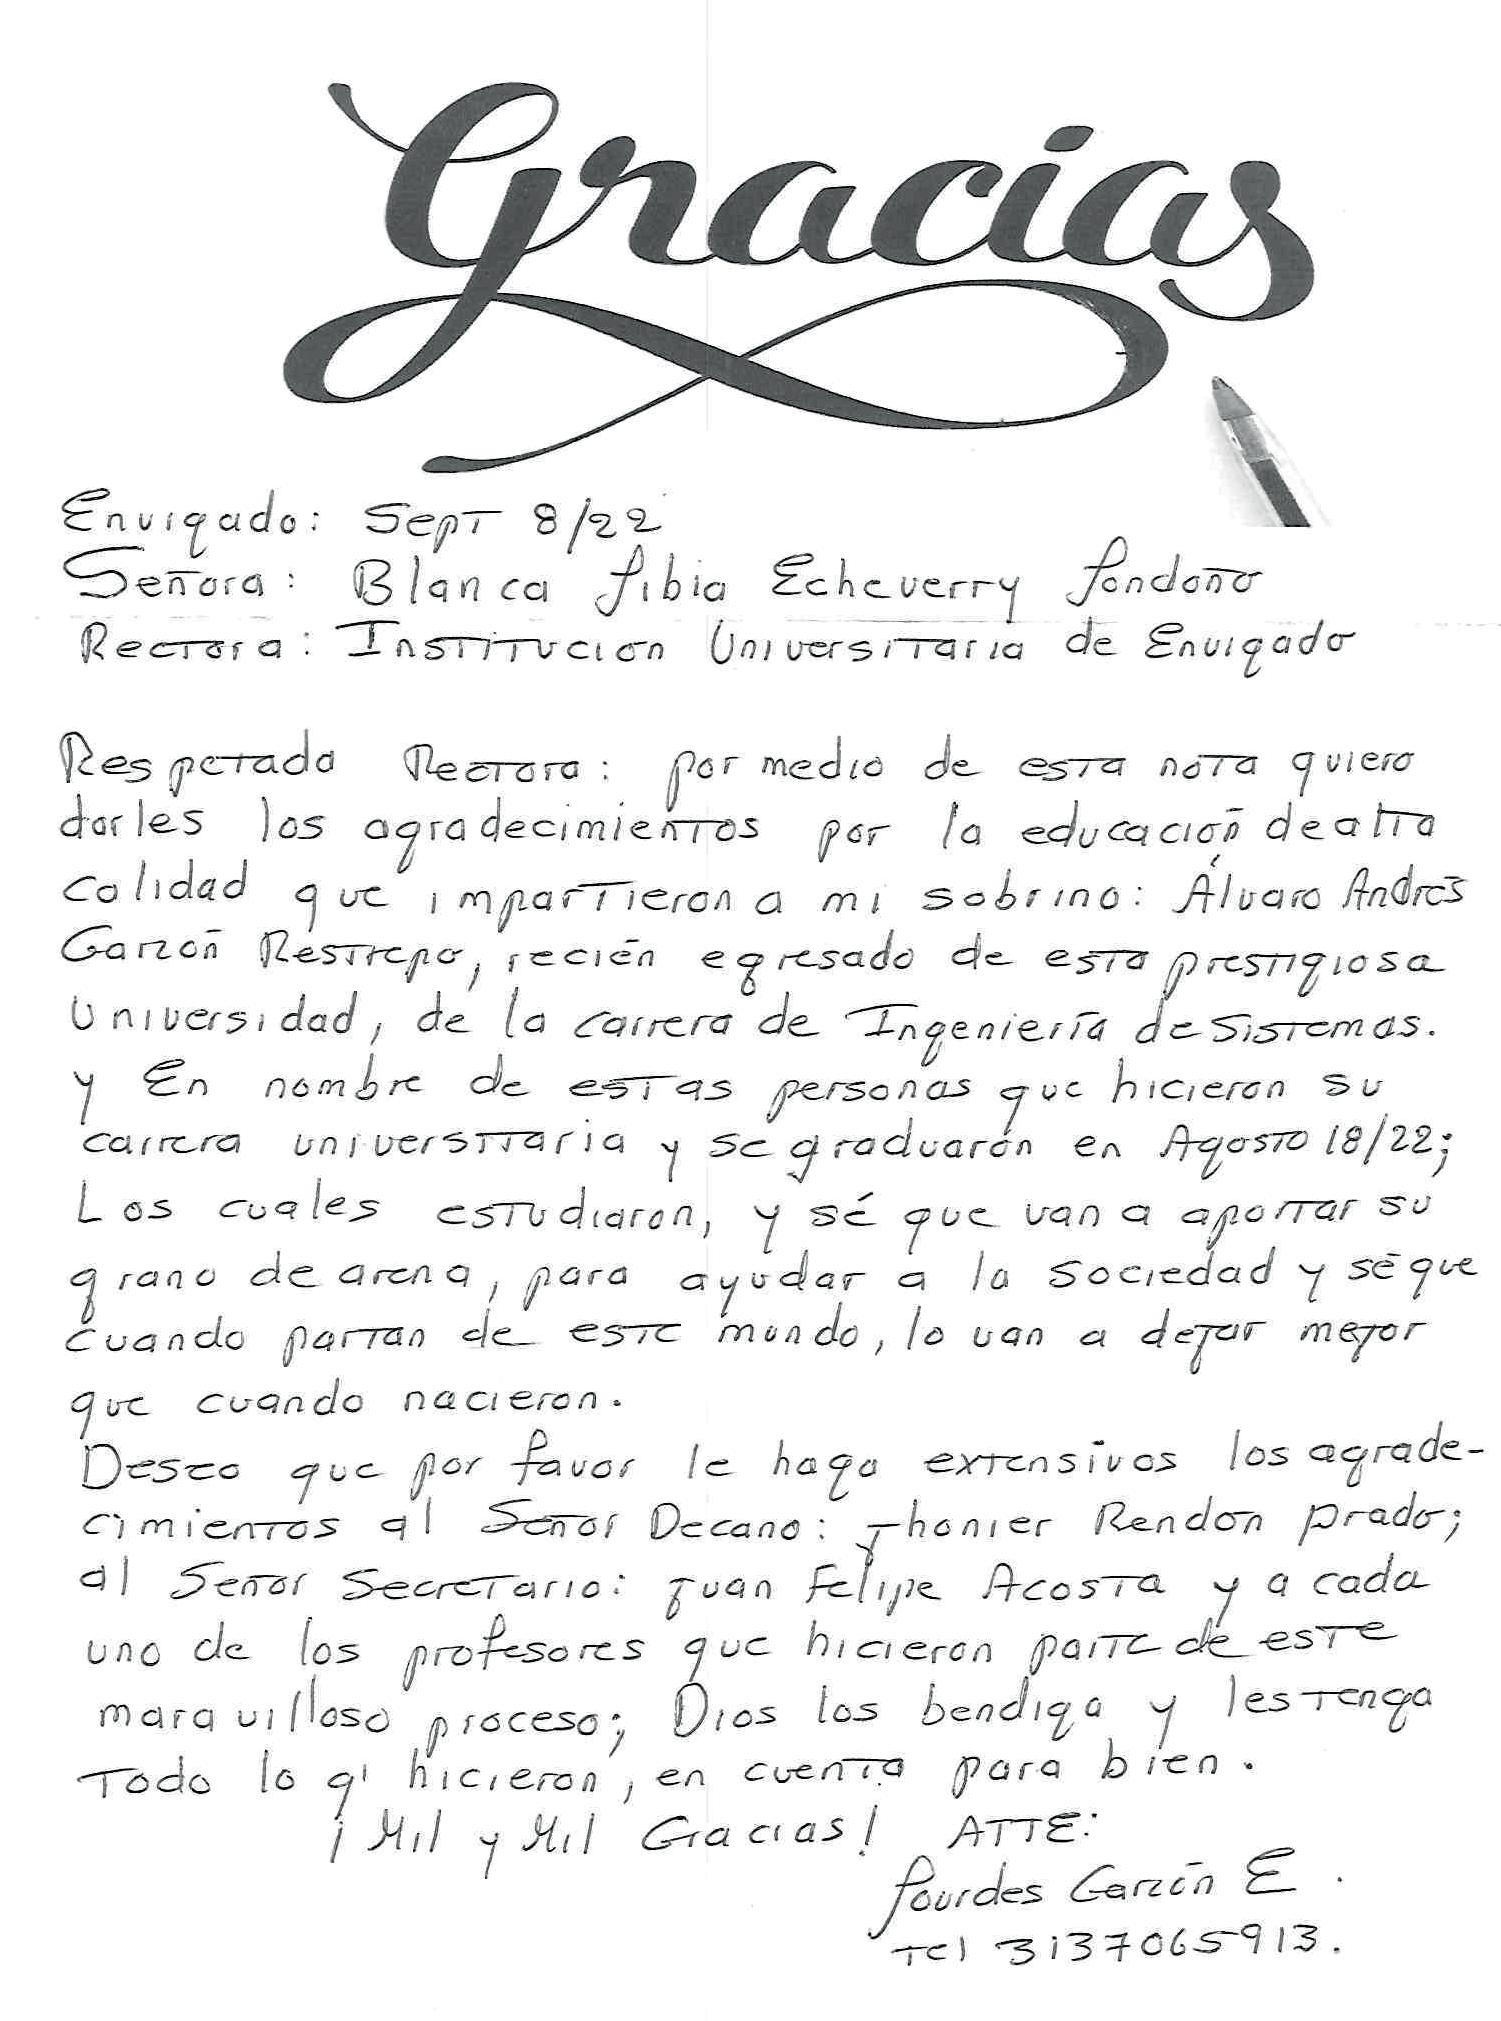 Gracias
Envigado: Sept 8/22
Señora: Blanca Libia Echeverry Londoño
Rectora: Institucion Universitaria de Envigado
Respetada Rectora: por medio de esta nota quiero
darles los agradecimientos por la educación de alta
calidad que impartieron a mi sobrino: Álvaro Andrés
Garzón Restrepo, recién egresado de esta prestigiosa
Universidad, de la carrera de Ingeniería de Sistemas.
y En nombre de estas personas que hicieron su
carrera universitaria y se graduarón en Agosto 18/22;
Los cuales estudiaron, y sé que van a aportar su
grano de arena, para ayudar a la sociedad y sé que
cuando partan de este mundo, lo van a dejar mejor
que cuando nacieron.
Deseo que por favor le haga extensivos los agrade-
cimientos al Señor Decano: Jhonier Rendón Prado;
al Señor Secretario: Juan Felipe Acosta y a cada
uno de los profesores que hicieron parte de este
maravilloso proceso; Dios los bendiga y les tenga
Todo lo q' hicieron, en cuenta para bien.
¡Mil y Mil Gracias! ATTE:
Lourdes Garzón E.
Tel 3137065913.